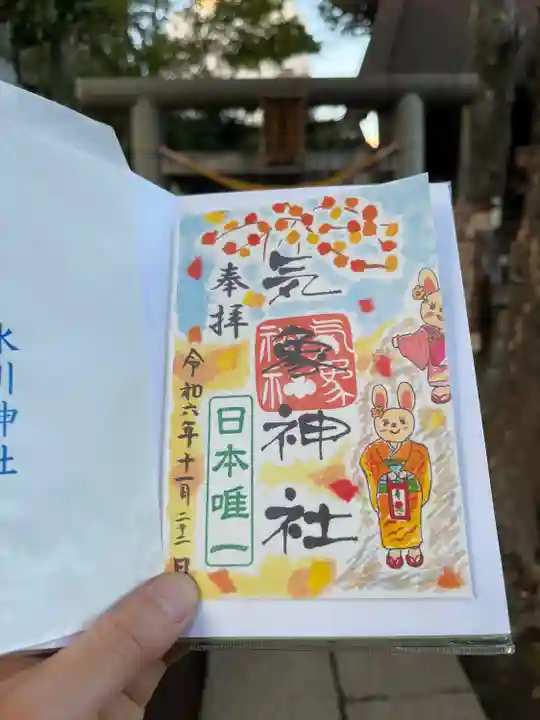 奉拝
気象神社
令和六年十一月二十二日
日本唯一
氷川神社